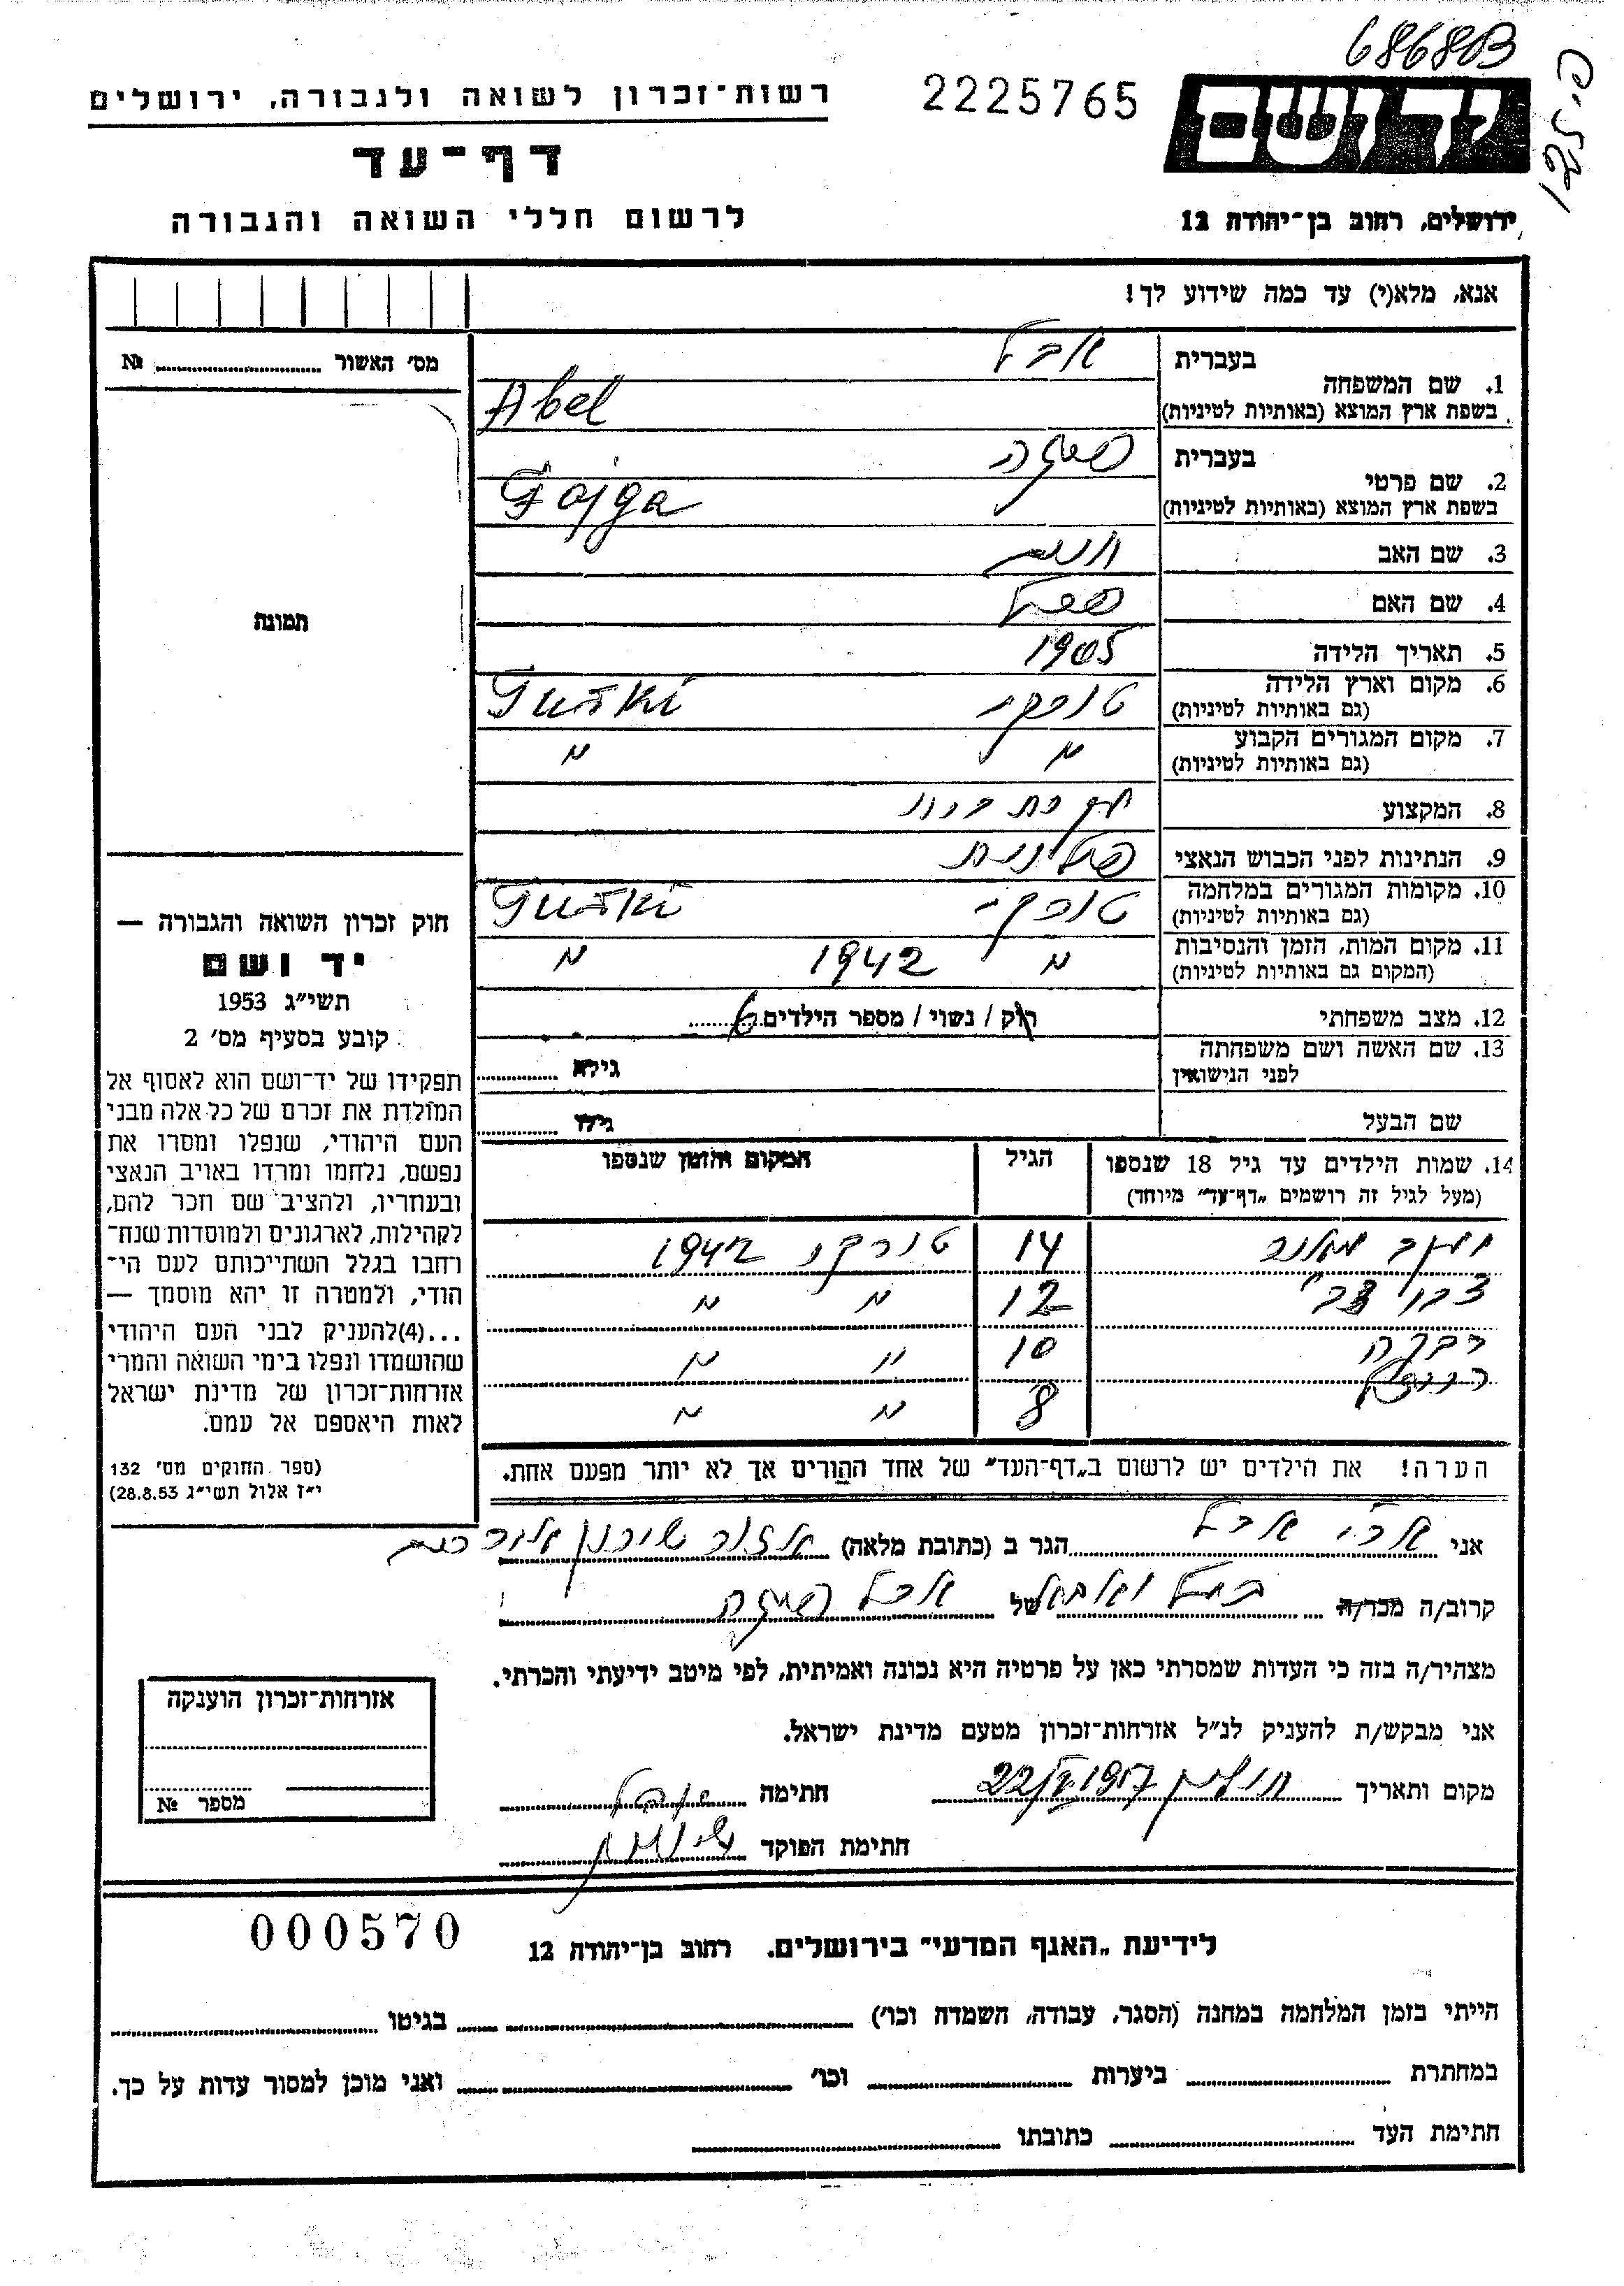 68683
רשות־זכרון לשואה ולגבורה, ירושלים
2225765
יד ושם
125
דף־עד
לרשום חללי השואה והגבורה
ירושלים, רחוב בן־יהודה 12
אנא, מלא(י) עד כמה שידוע לך!
מס׳ האשור № ..........
תמונה
בעברית אבל
1. שם המשפחה
בשפת ארץ המוצא (באותיות לטיניות) Abel
בעברית פייגה
2. שם פרטי
בשפת ארץ המוצא (באותיות לטיניות) Fajga
3. שם האב חיים
4. שם האם
5. תאריך הלידה 1905
6. מקום וארץ הלידה טורקי Turki
(גם באותיות לטיניות)
7. מקום המגורים הקבוע " "
(גם באותיות לטיניות)
8. המקצוע עקרת בית
9. הנתינות לפני הכבוש הנאצי פולנית
10. מקומות המגורים במלחמה טורקי Turki
(גם באותיות לטיניות)
11. מקום המות, הזמן והנסיבות " 1942 "
(המקום גם באותיות לטיניות)
12. מצב משפחתי רוק / נשוי / מספר הילדים 6
13. שם האשה ושם משפחתה גילה ..........
לפני הנישואין
שם הבעל גילו ..........
14. שמות הילדים עד גיל 18 שנספו הגיל המקום והזמן שנספו
(מעל לגיל זה רושמים „דף־עד״ מיוחד)
יעקב 14 טורקי 1942
צבי 12 " "
רבקה 10 " "
8 " "
הערה! את הילדים יש לרשום ב„דף־העד״ של אחד ההורים אך לא יותר מפעם אחת.
חוק זכרון השואה והגבורה —
יד ושם
תשי״ג 1953
קובע בסעיף מס׳ 2
תפקידו של יד־ושם הוא לאסוף אל
המולדת את זכרם של כל אלה מבני
העם היהודי, שנפלו ומסרו את
נפשם, נלחמו ומרדו באויב הנאצי
ובעוזריו, ולהציב שם וזכר להם,
לקהילות, לארגונים ולמוסדות שנח־
רחבו בגלל השתייכותם לעם הי־
הודי, ולמטרה זו יהא מוסמך —
...(4)להעניק לבני העם היהודי
שהושמדו ונפלו בימי השואה והמרי
אזרחות־זכרון של מדינת ישראל
לאות היאספם אל עמם.
(ספר החוקים מס׳ 132
י״ז אלול תשי״ג 28.8.53)
אני אבל הגר ב (כתובת מלאה) אזור שיכון
קרוב/ה מכר/ה של אבל פייגה
מצהיר/ה בזה כי העדות שמסרתי כאן על פרטיה היא נכונה ואמיתית, לפי מיטב ידיעתי והכרתי.
אני מבקש/ת להעניק לנ״ל אזרחות־זכרון מטעם מדינת ישראל.
מקום ותאריך חולון 22/VI 1957 חתימה אבל
חתימת הפוקד
אזרחות־זכרון הוענקה
מספר №
000570
לידיעת „האגף המדעי״ בירושלים. רחוב בן־יהודה 12
הייתי בזמן המלחמה במחנה (הסגר, עבודה, השמדה וכו׳) .......... בגיטו ..........
במחתרת .......... ביערות .......... וכו׳ .......... ואני מוכן למסור עדות על כך.
חתימת העד .......... כתובתו ..........